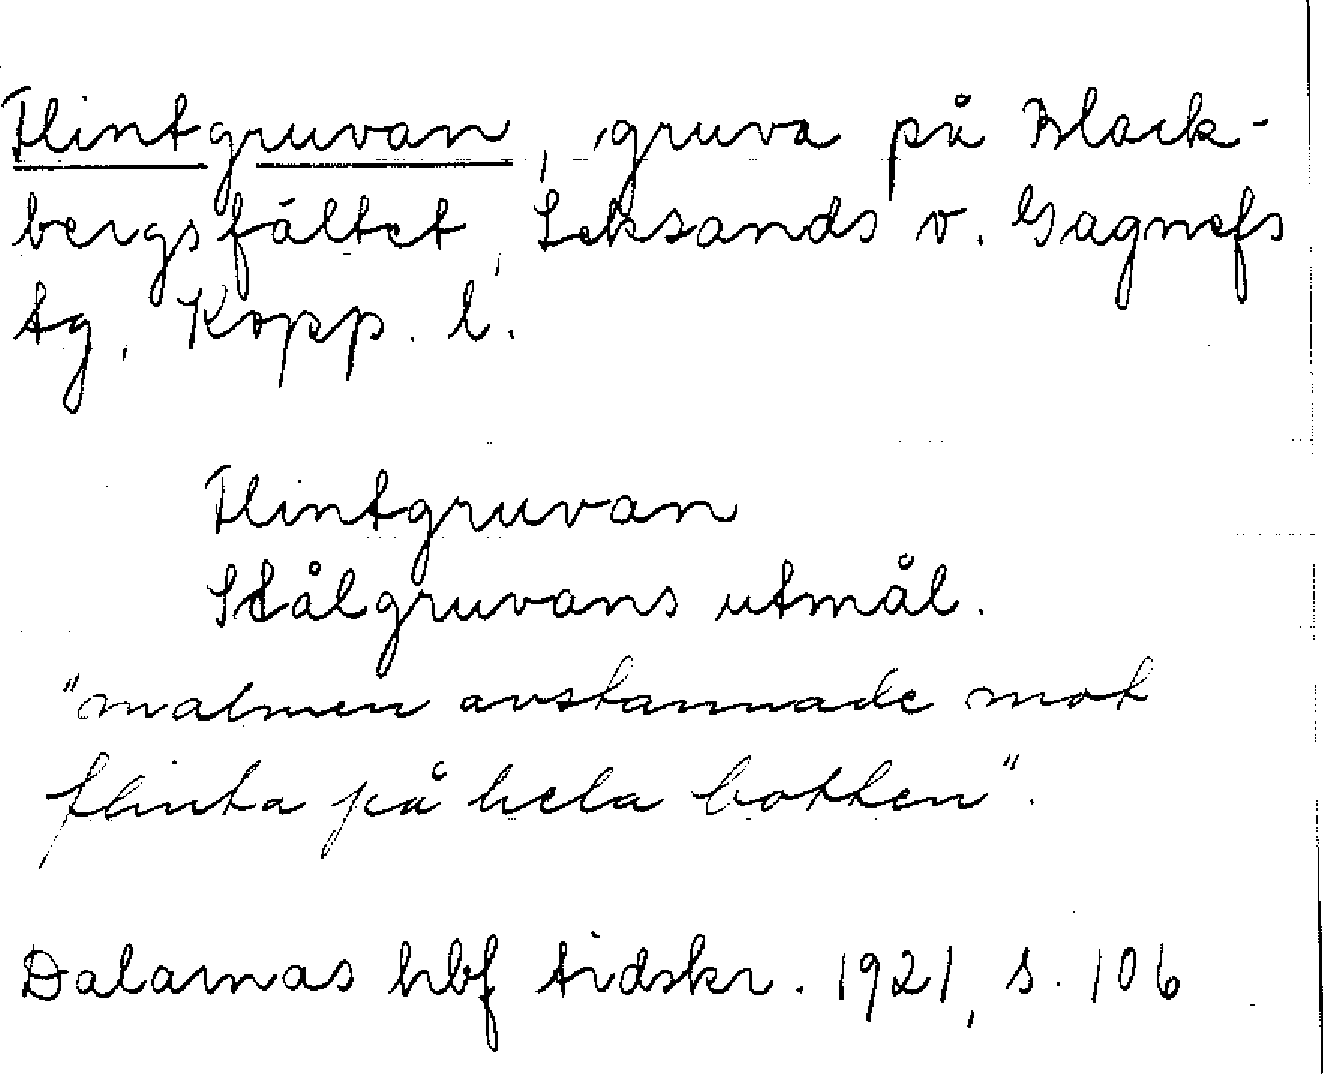 Flintgruvan, gruva på Black-
bergsfältet, Leksands o. Gagnefs
tg, Kopp. l.
Flintgruvan
Stålgruvans utmål.
"malmen avstannade mot
flinta på hela botten".
Dalarnas hbf tidskr. 1921, s. 106